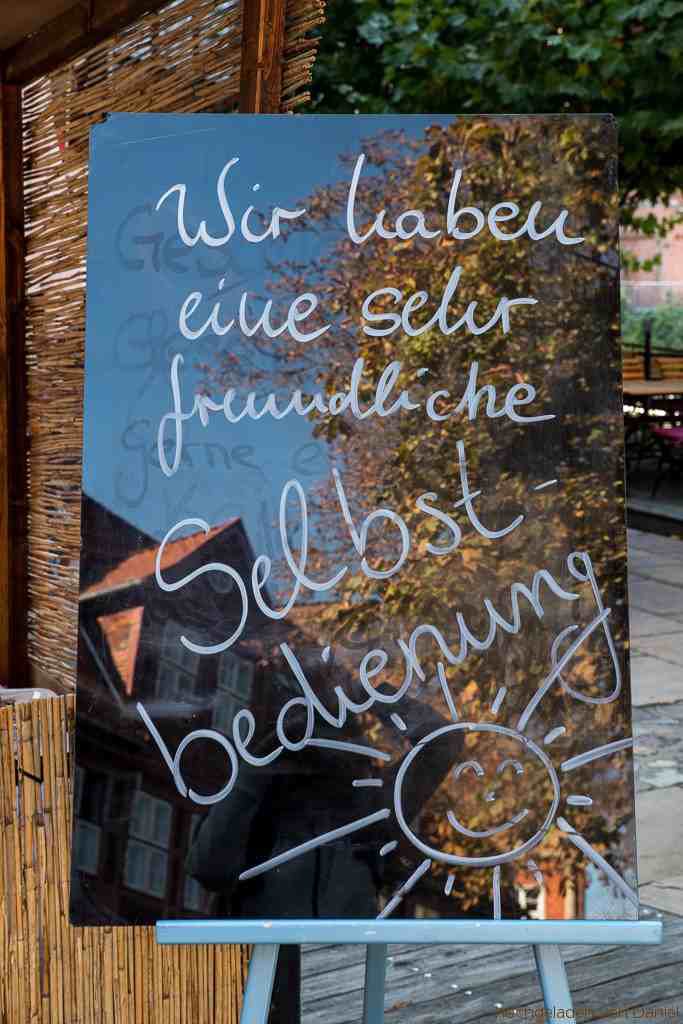 Wir haben
eine sehr
freundliche
Selbst-
bedienung
hochgeladen von Daniel